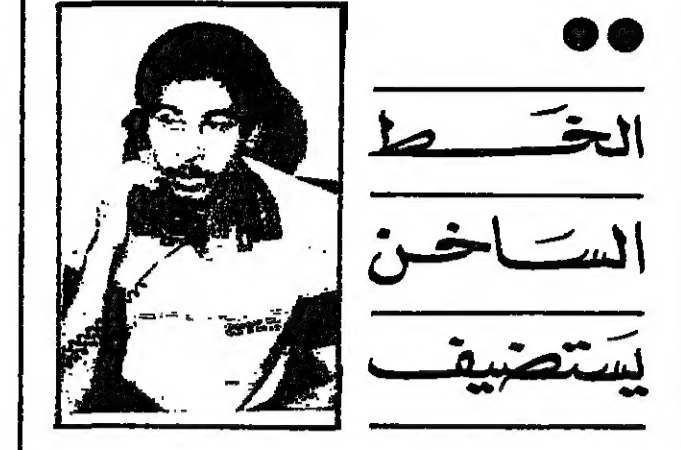 الخط
الساخن
يستضيف